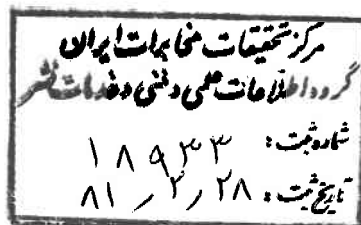 مرکز تحقیقات مخابرات ایران
گروه اطلاعات علمی و فنی و خدمات نشر
شماره ثبت: ۱۸۹۳۳
تاریخ ثبت: ۸۱/۲/۲۸